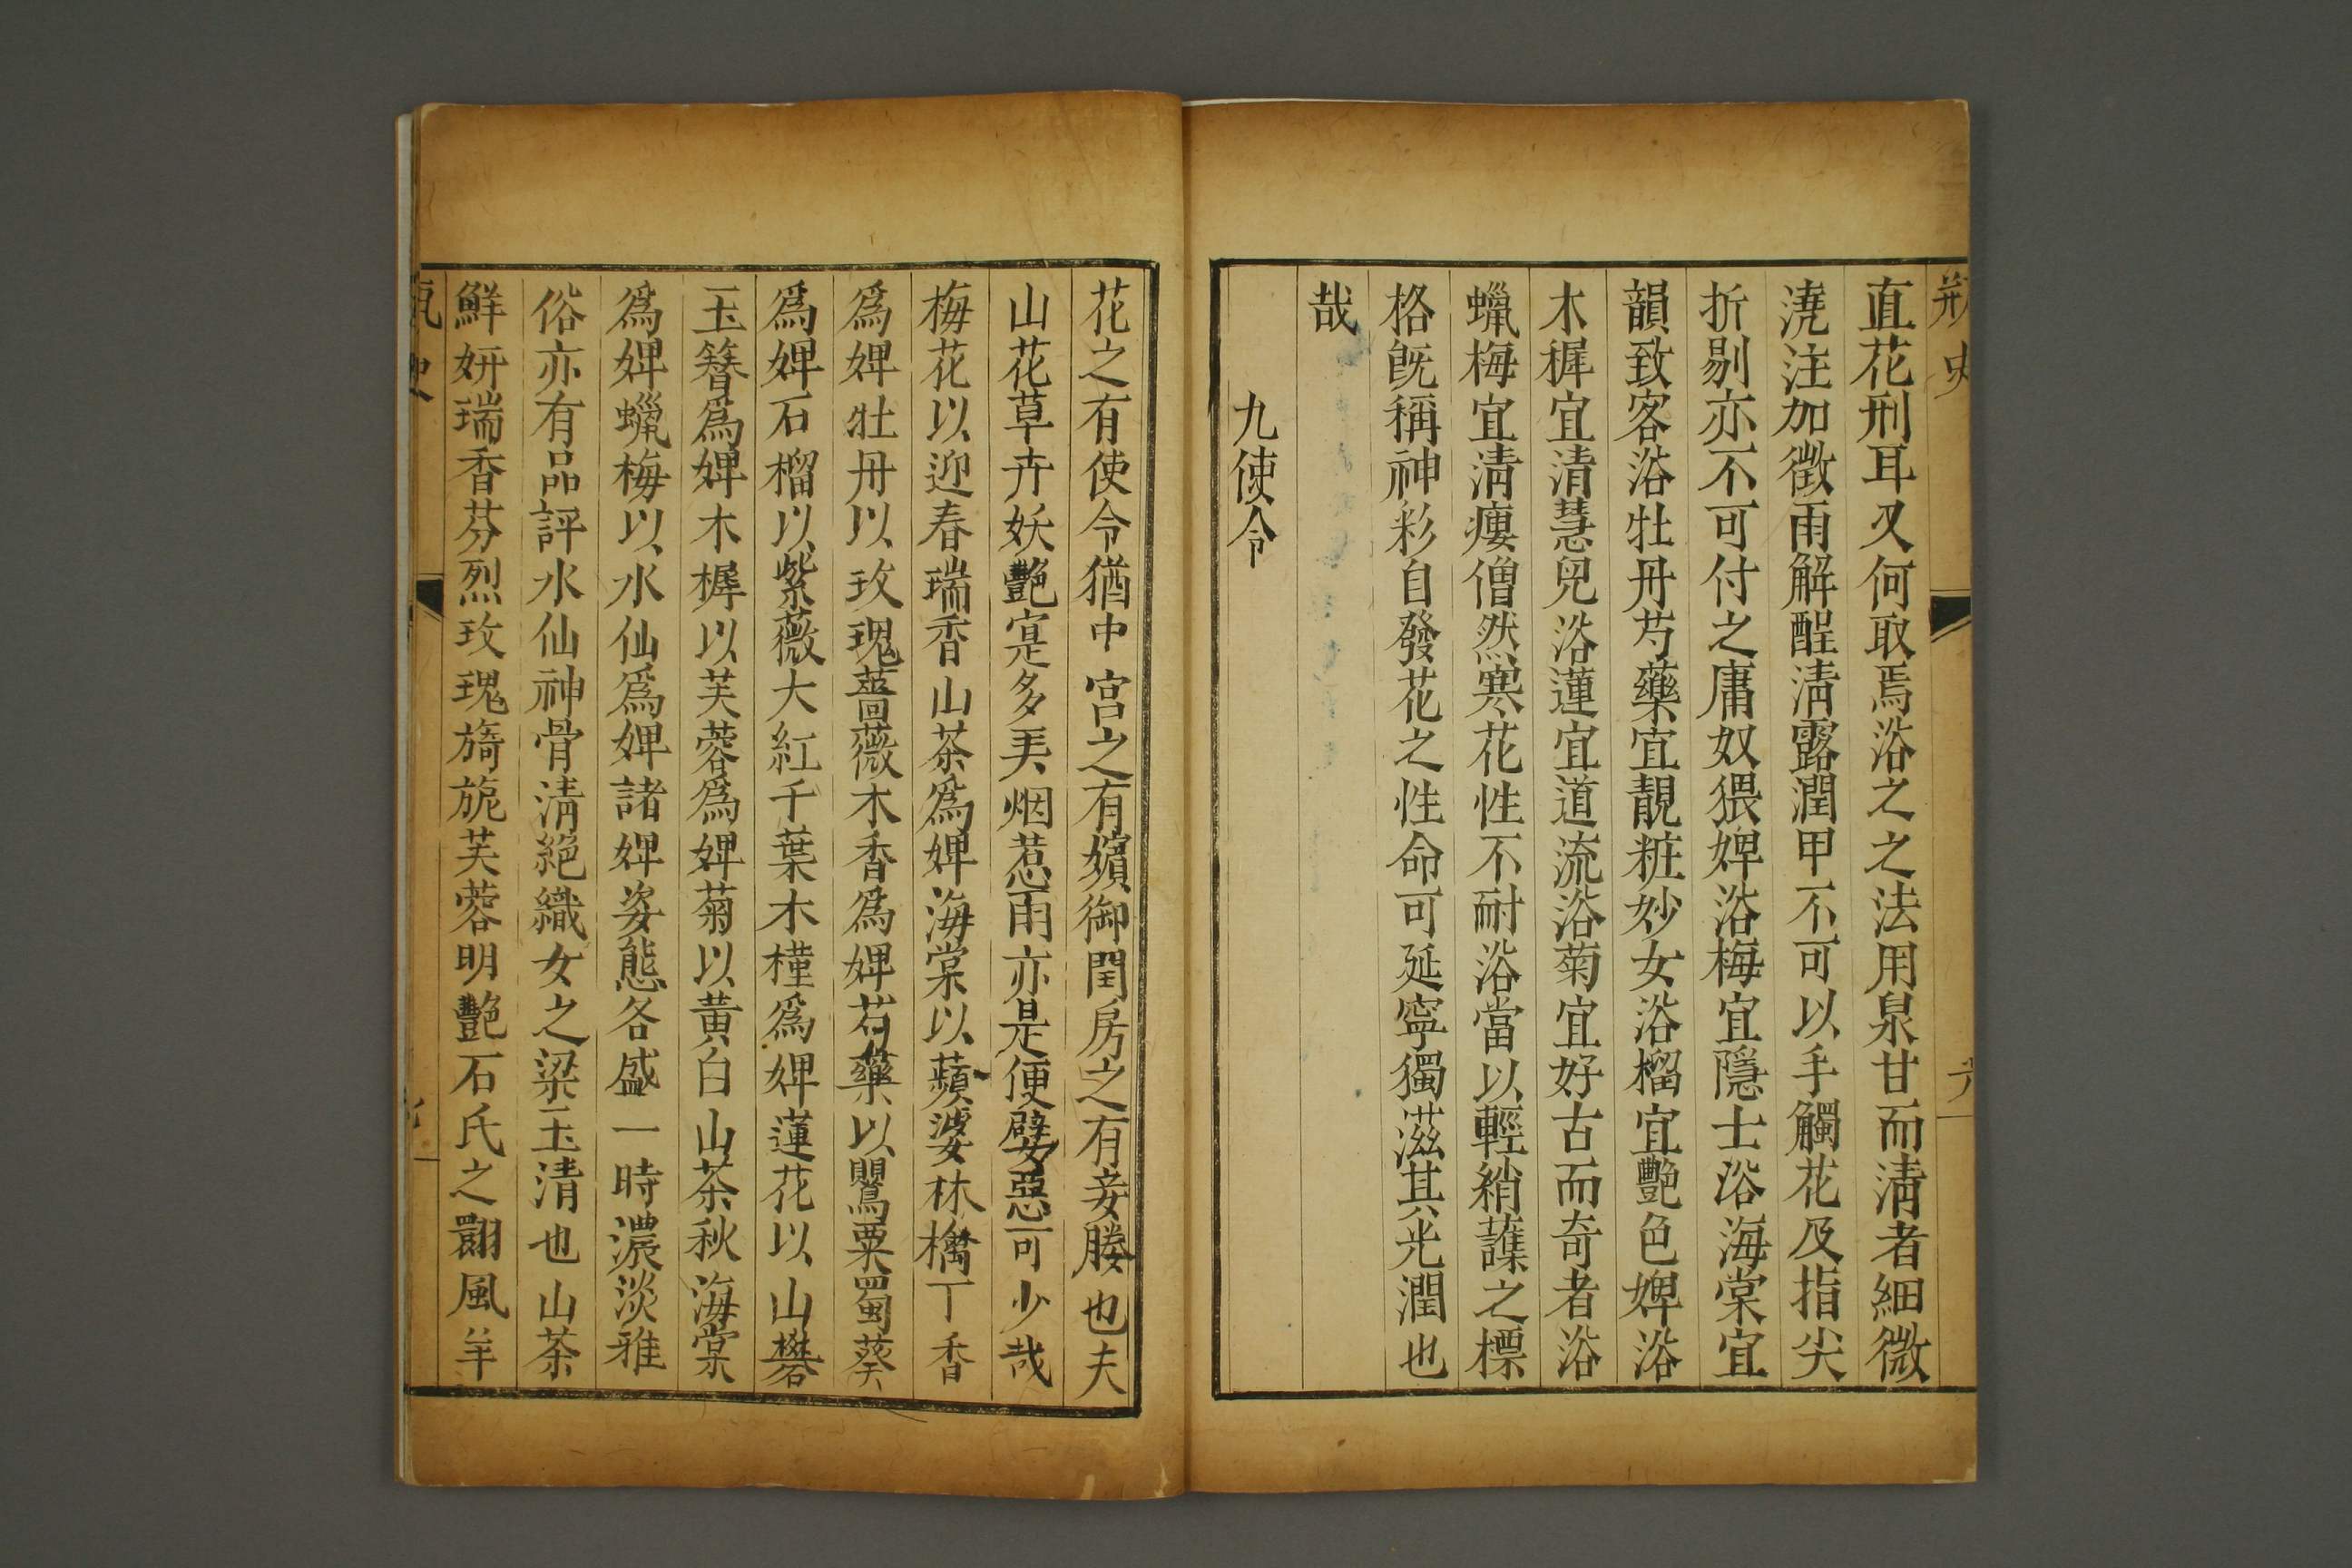 瓶史
直花刑耳又何取焉浴之之法用泉甘而清者細微
澆注加微雨解酲清露潤甲不可以手觸花及指尖
折剔亦不可付之庸奴猥婢浴梅宜隱士浴海棠宜
韻致客浴牡丹芍藥宜靚粧妙女浴榴宜艷色婢浴
木樨宜清慧兒浴蓮宜道流浴菊宜好古而奇者浴
蠟梅宜清瘦僧然寒花性不耐浴當以輕綃護之標
格旣稱神彩自發花之性命可延寧獨滋其光潤也
哉
九使令
花之有使令猶中宮之有嬪御閨房之有妾媵也夫
山花草卉妖艷寔多弄烟惹雨亦是便嬖惡可少哉
梅花以迎春瑞香山茶爲婢海棠以蘋婆林檎丁香
爲婢牡丹以玫瑰薔薇木香爲婢芍藥以鸎粟蜀葵
爲婢石榴以紫薇大紅千葉木槿爲婢蓮花以山礬
玉簪爲婢木樨以芙蓉爲婢菊以黃白山茶秋海棠
爲婢蠟梅以水仙爲婢諸婢姿態各盛一時濃淡雅
俗亦有品評水仙神骨清絕織女之梁玉清也山茶
鮮妍瑞香芬烈玫瑰旖旎芙蓉明艷石氏之翾風羊
瓶史